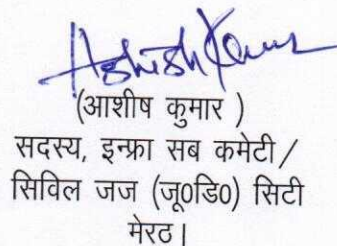 Ashish Kumar
(आशीष कुमार )
सदस्य, इन्फ्रा सब कमेटी /
सिविल जज (जू0डि0) सिटी
मेरठ।